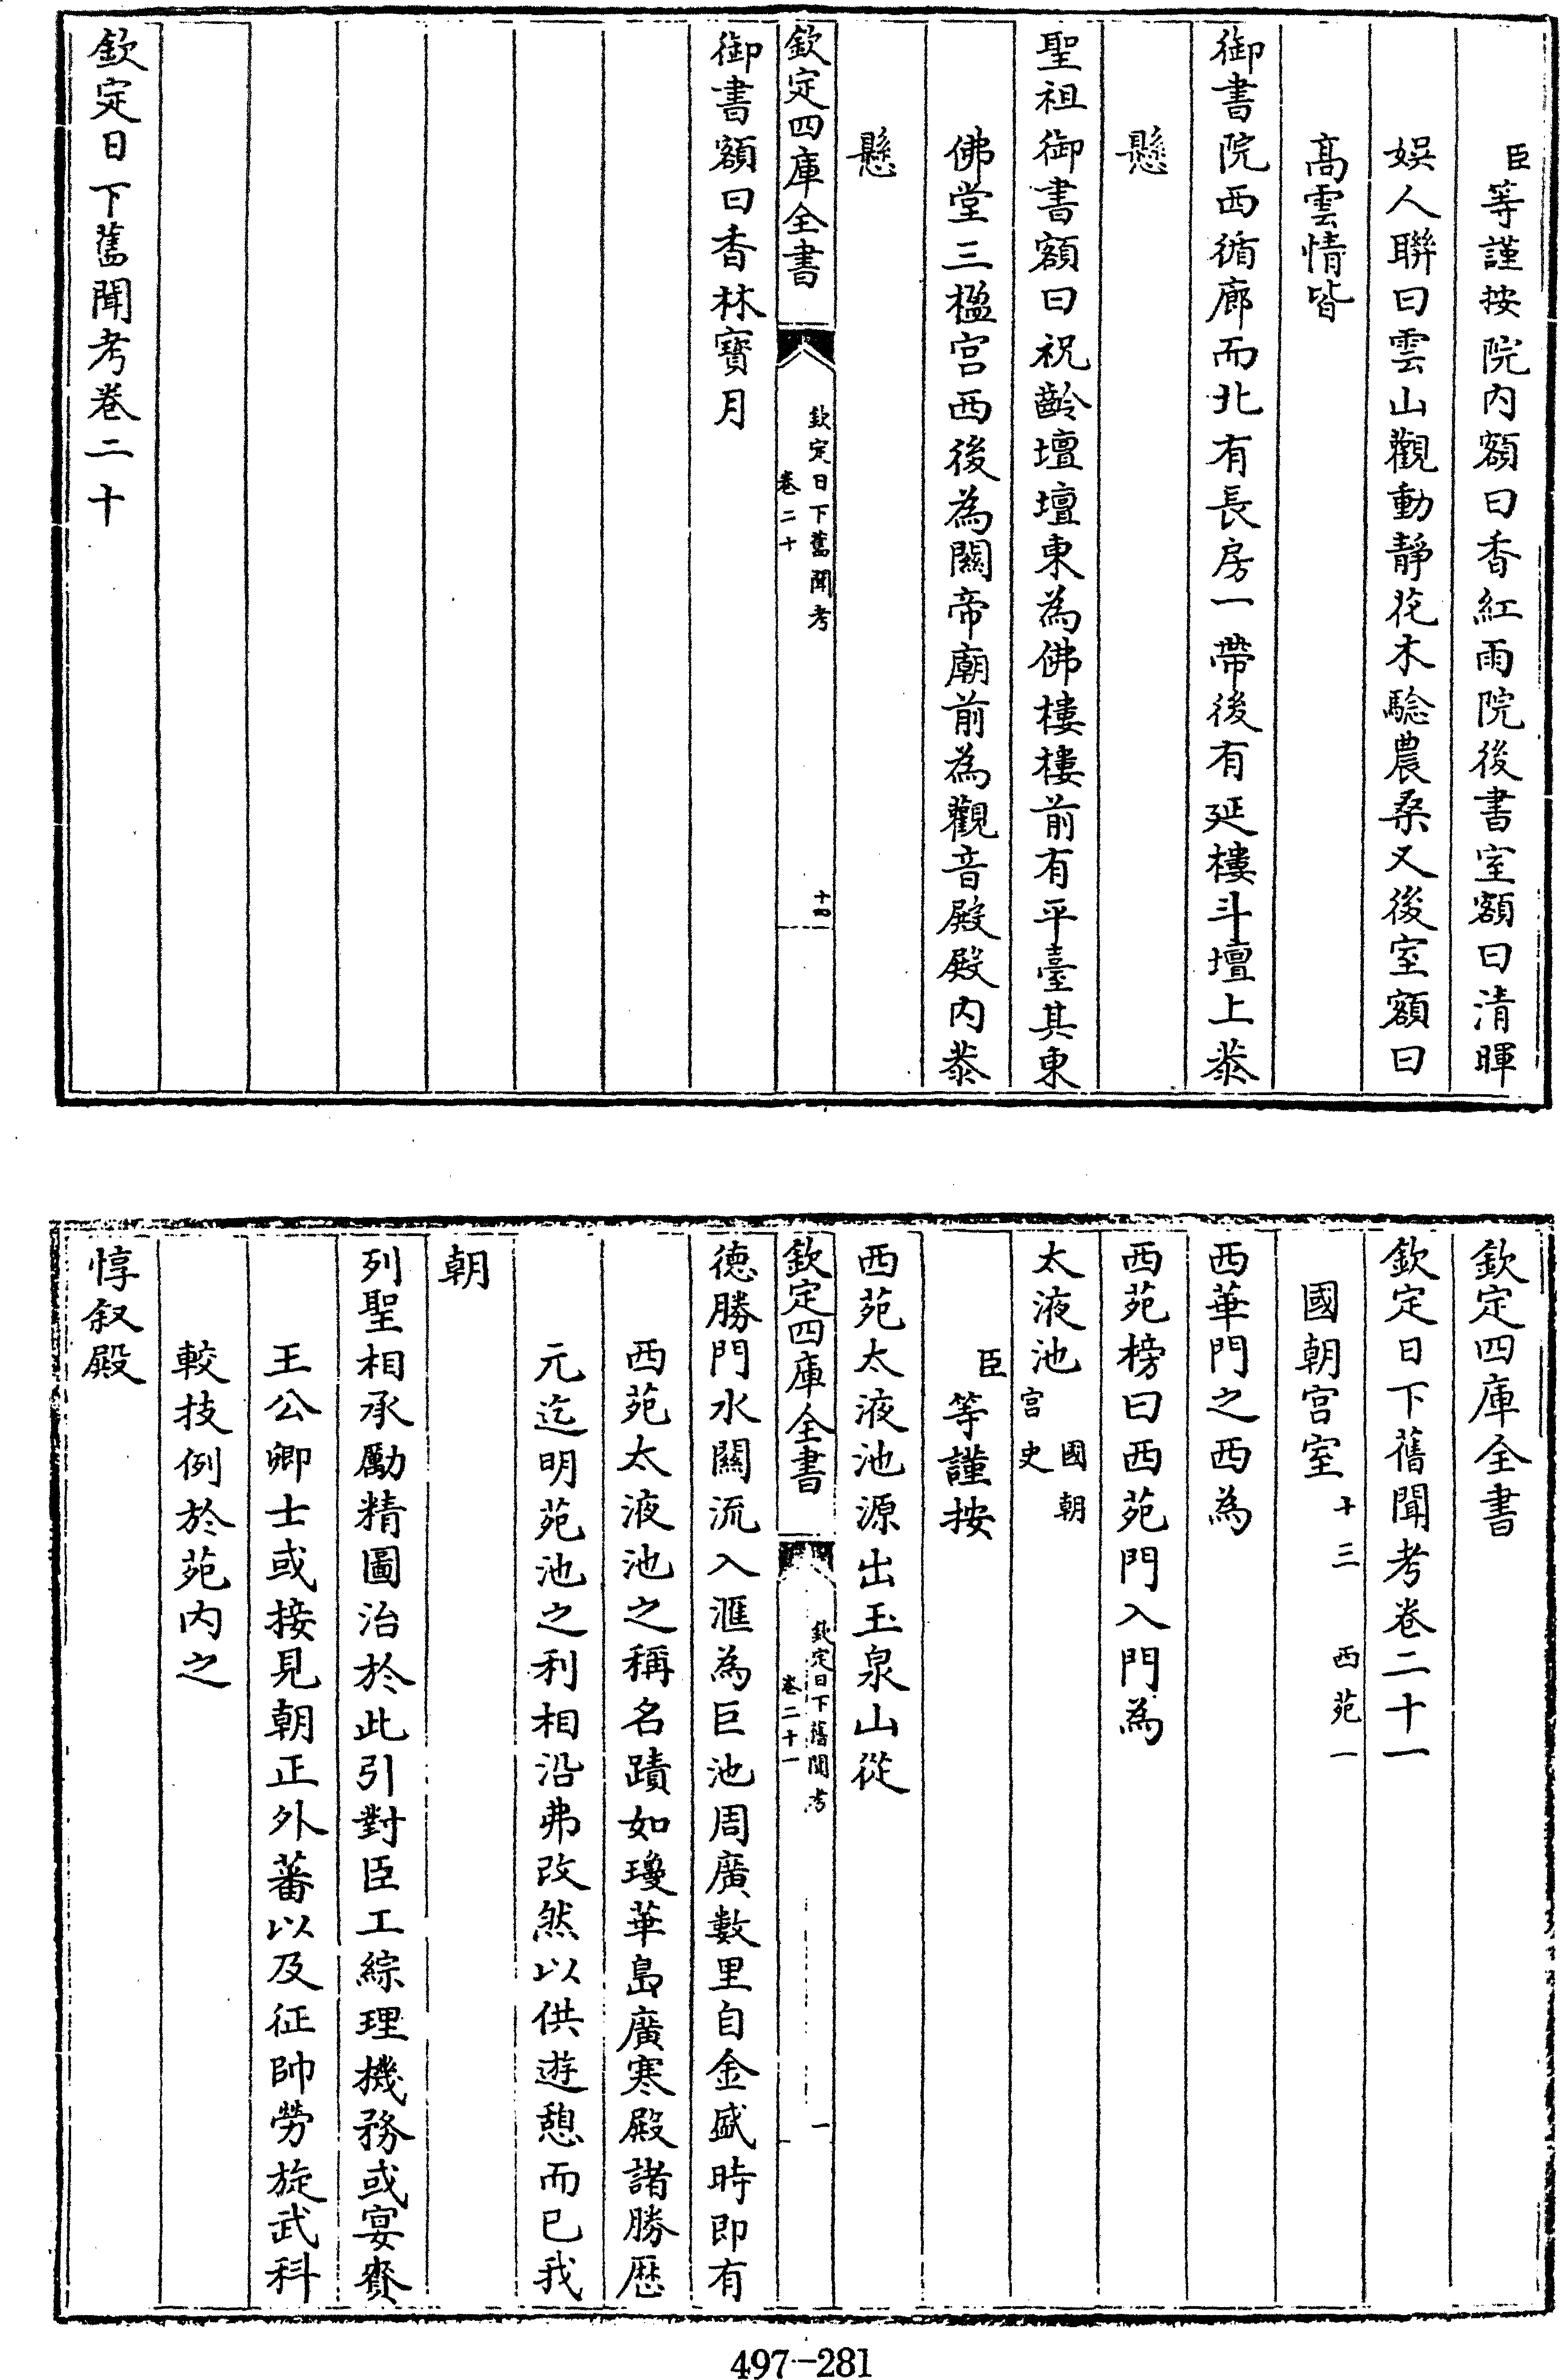 臣等謹按院内額曰香紅雨院後書室額曰清暉
娱人聯曰雲山觀動静花木騐農桑又後室額曰
髙雲情皆
御書院西循廊而北有長房一帶後有延樓斗壇上恭
懸
聖祖御書額曰祝齡壇壇東為佛樓樓前有平臺其東
佛堂三楹宫西後為關帝廟前為觀音殿殿内恭
懸
欽定四庫全書
欽定日下舊聞考
卷二十
十四
御書額曰香林寶月
欽定日下舊聞考卷二十
欽定四庫全書
欽定日下舊聞考卷二十一
國朝宫室十三 西苑一
西華門之西為
西苑榜曰西苑門入門為
太液池國朝宫史
臣等謹按
西苑太液池源出玉泉山從
欽定四庫全書
欽定日下舊聞考
卷二十一
一
德勝門水關流入滙為巨池周廣數里自金盛時即有
西苑太液池之稱名蹟如瓊華島廣寒殿諸勝歴
元迄明苑池之利相沿弗改然以供遊憩而已我
朝
列聖相承勵精圖治於此引對臣工綜理機務或宴賚
王公卿士或接見朝正外蕃以及征帥勞旋武科
較技例於苑内之
惇叙殿
497-281